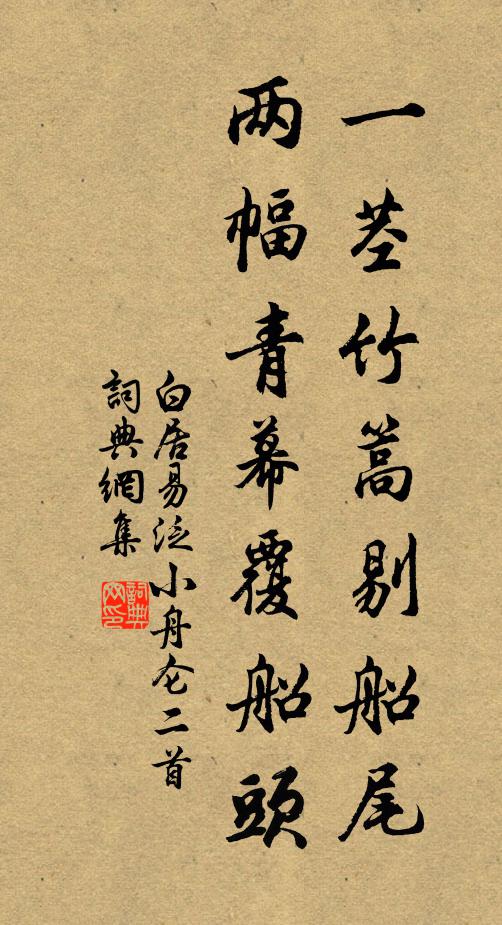 一茎竹篙剔船尾
两幅青幕覆船頭
白居易泛小舟仑二首
詞典網集
詞典
网印